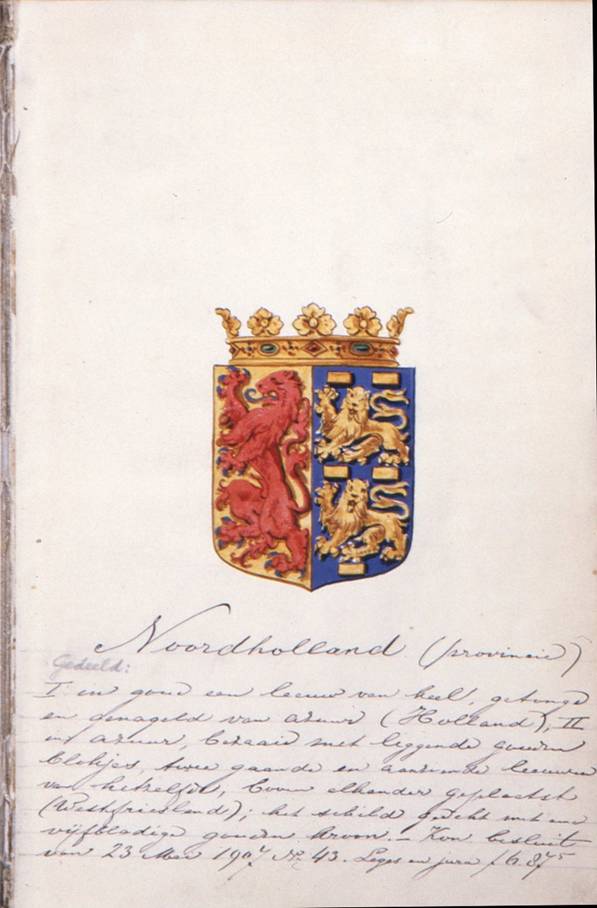 Noordholland (provincie)
Gedeeld:
I in goud een leeuw van keel, getongd
en genageld van azuur (Holland), II
in azuur, bezaaid met liggende gouden
blokjes, twee gaande en aanziende leeuwen
van hetzelfde, boven elkander geplaatst
(Westfriesland); het schild gedekt met eene
vijfbladige gouden kroon. - Kon besluit
van 23 Mei 1907 No. 43. Leges en jura f 6.875